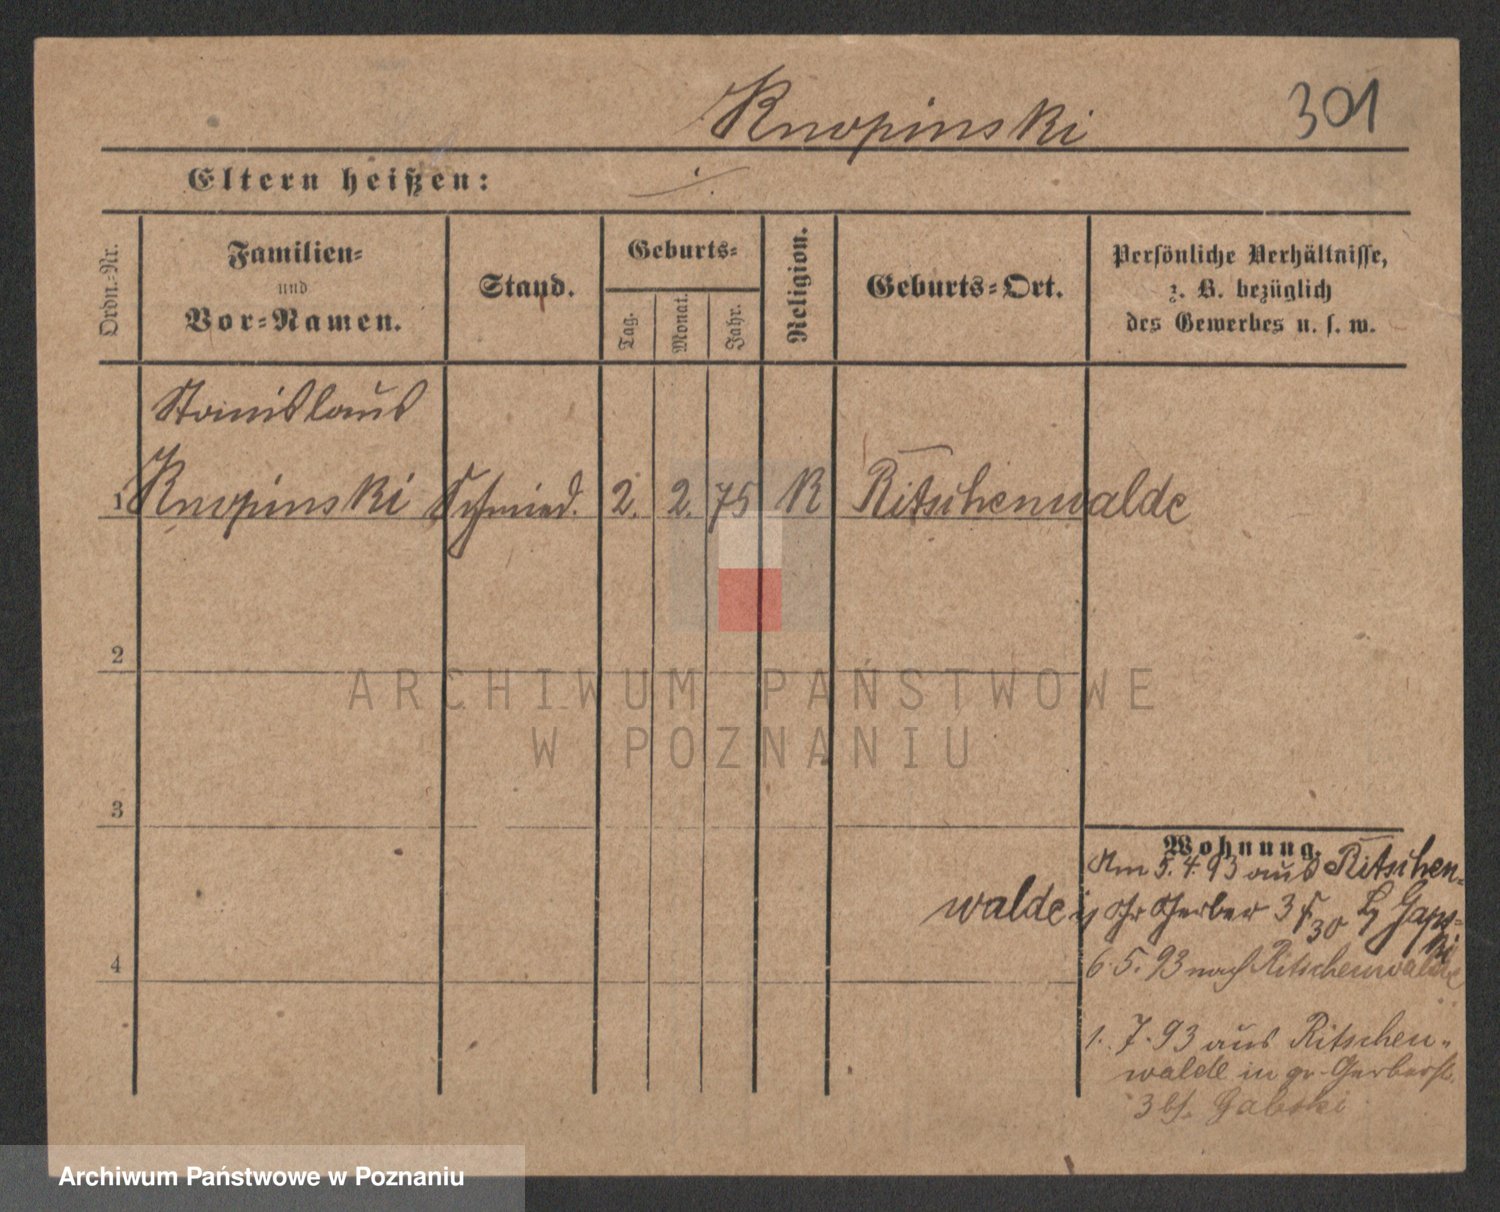 Knopinski
301
Eltern heißen: ./.
Ordn.-Nr.
Familien-
und
Vor-Namen.
Stand.
Geburts-
Tag.
Monat.
Jahr.
Religion.
Geburts-Ort.
Persönliche Verhältnisse,
z. B. bezüglich
des Gewerbes u. s. w.
Stanislaus
1 Knopinski Schmied. 2. 2. 75 K Ritschenwalde
2
ARCHIWUM PAŃSTWOWE
W POZNANIU
3
Wohnung.
Am 5.4.93 aus Ritschen-
walde Gr Gerber 3
4
6.5.93 nach Ritschenwalde
1.7.93 aus Ritschen-
walde in gr. Gerberst.
3 bei Gabski
Archiwum Państwowe w Poznaniu